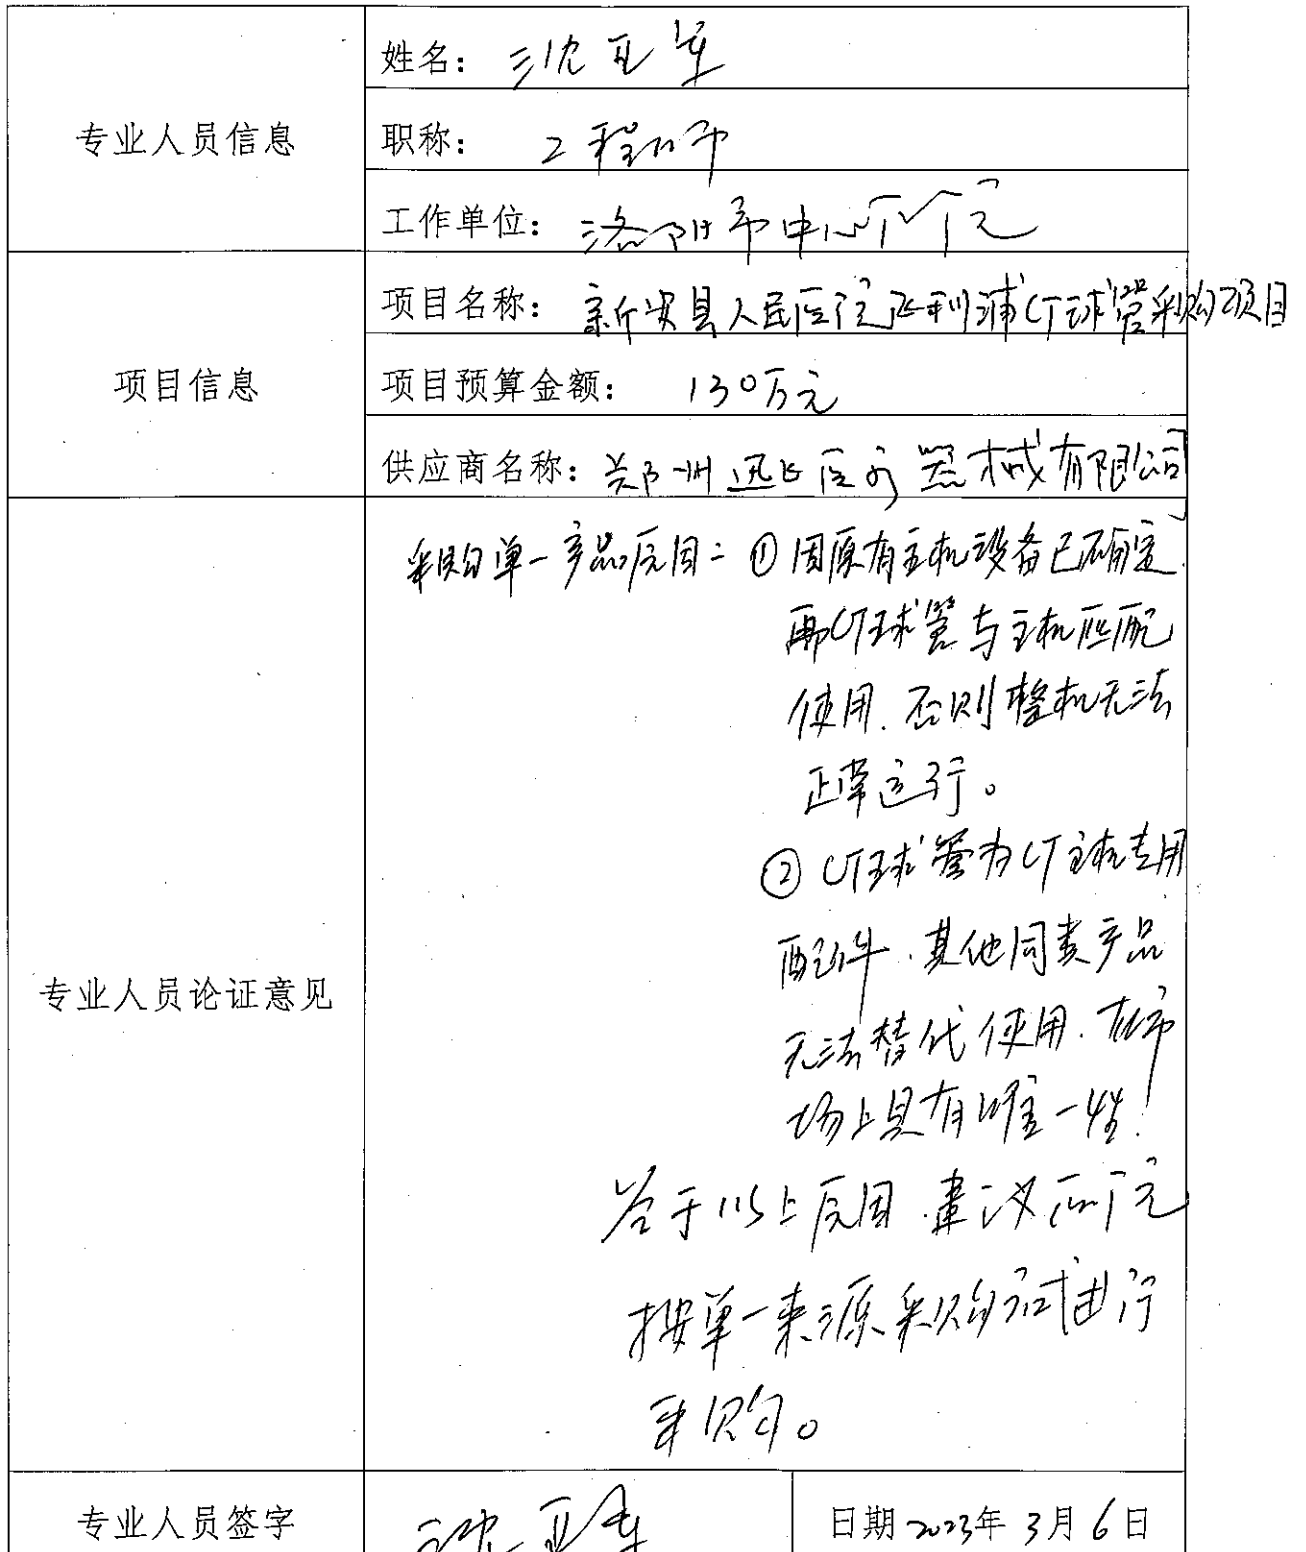 姓名：沈亚军
专业人员信息
职称：工程师
工作单位：洛阳市中心医院
项目名称：新安县人民医院飞利浦CT球管采购项目
项目信息
项目预算金额：130万元
供应商名称：郑州迅飞医疗器械有限公司
采购单一产品原因：①因原有主机设备已确定.
再CT球管与主机匹配
使用.否则整机无法
正常运行。
②CT球管为CT主机专用
配件.其他同类产品
专业人员论证意见
无法替代使用.在市
场上具有唯一性!
若于以上原因.建议医院
按单一来源采购方式进行
采购。
专业人员签字
沈亚军
日期2023年3月6日